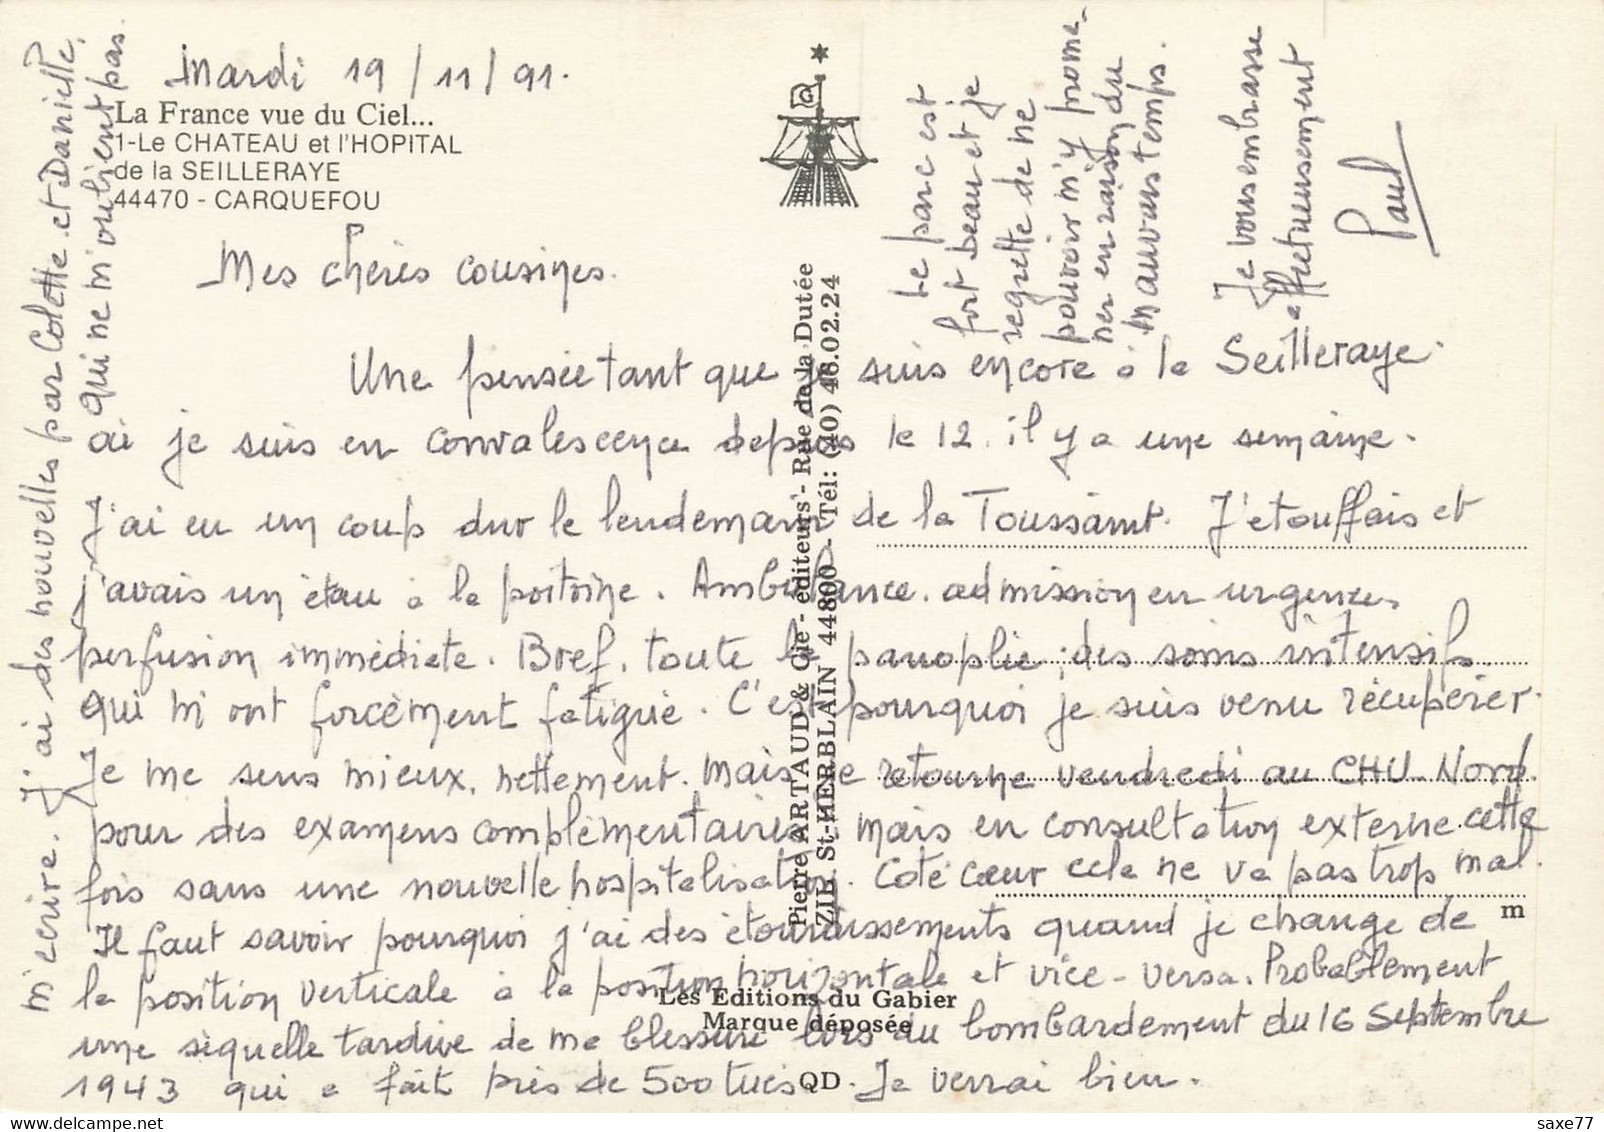 Mardi 19/11/91.
La France vue du Ciel...
1-Le CHATEAU et l'HOPITAL
de la SEILLERAYE
44470 - CARQUEFOU
Mes chères cousines.
Une pensée tant que je suis encore à la Seilleraye.
où je suis en convalescence depuis le 12. il y a une semaine.
J'ai eu un coup dur le lendemain de la Toussaint. J'étouffais et
j'avais un étau à la poitrine. Ambulance. admission en urgences
perfusion immédiate. Bref, toute la panoplie; des soins intensifs
qui m'ont forcément fatigué. C'est pourquoi je suis venu récupérer.
Je me sens mieux, nettement. Mais je retourne vendredi au CHU-Nord.
pour des examens complémentaires. mais en consultation externe cette
fois sans une nouvelle hospitalisation. Coté cœur cela ne va pas trop mal.
Il faut savoir pourquoi j'ai des étourdissements quand je change de
la position verticale à la position horizontale et vice-versa. Probablement
une séquelle tardive de ma blessure lors du bombardement du 16 Septembre
1943 qui a fait près de 500 tués. Je verrai bien.
J'ai des nouvelles par Colette et Danielle,
qui ne m'oublient pas.
m'écrire.
Le parc est
fort beau et je
regrette de ne
pouvoir m'y prome-
ner en raison du
mauvais temps.
Je vous embrasse
affectueusement
Paul
Pierre ARTAUD & Cie - éditeurs - Rue de la Dutée
ZIL St-HERBLAIN 44800 - Tél: (40) 46.02.24
m
Les Editions du Gabier
Marque déposée
QD
delcampe.net
saxe77